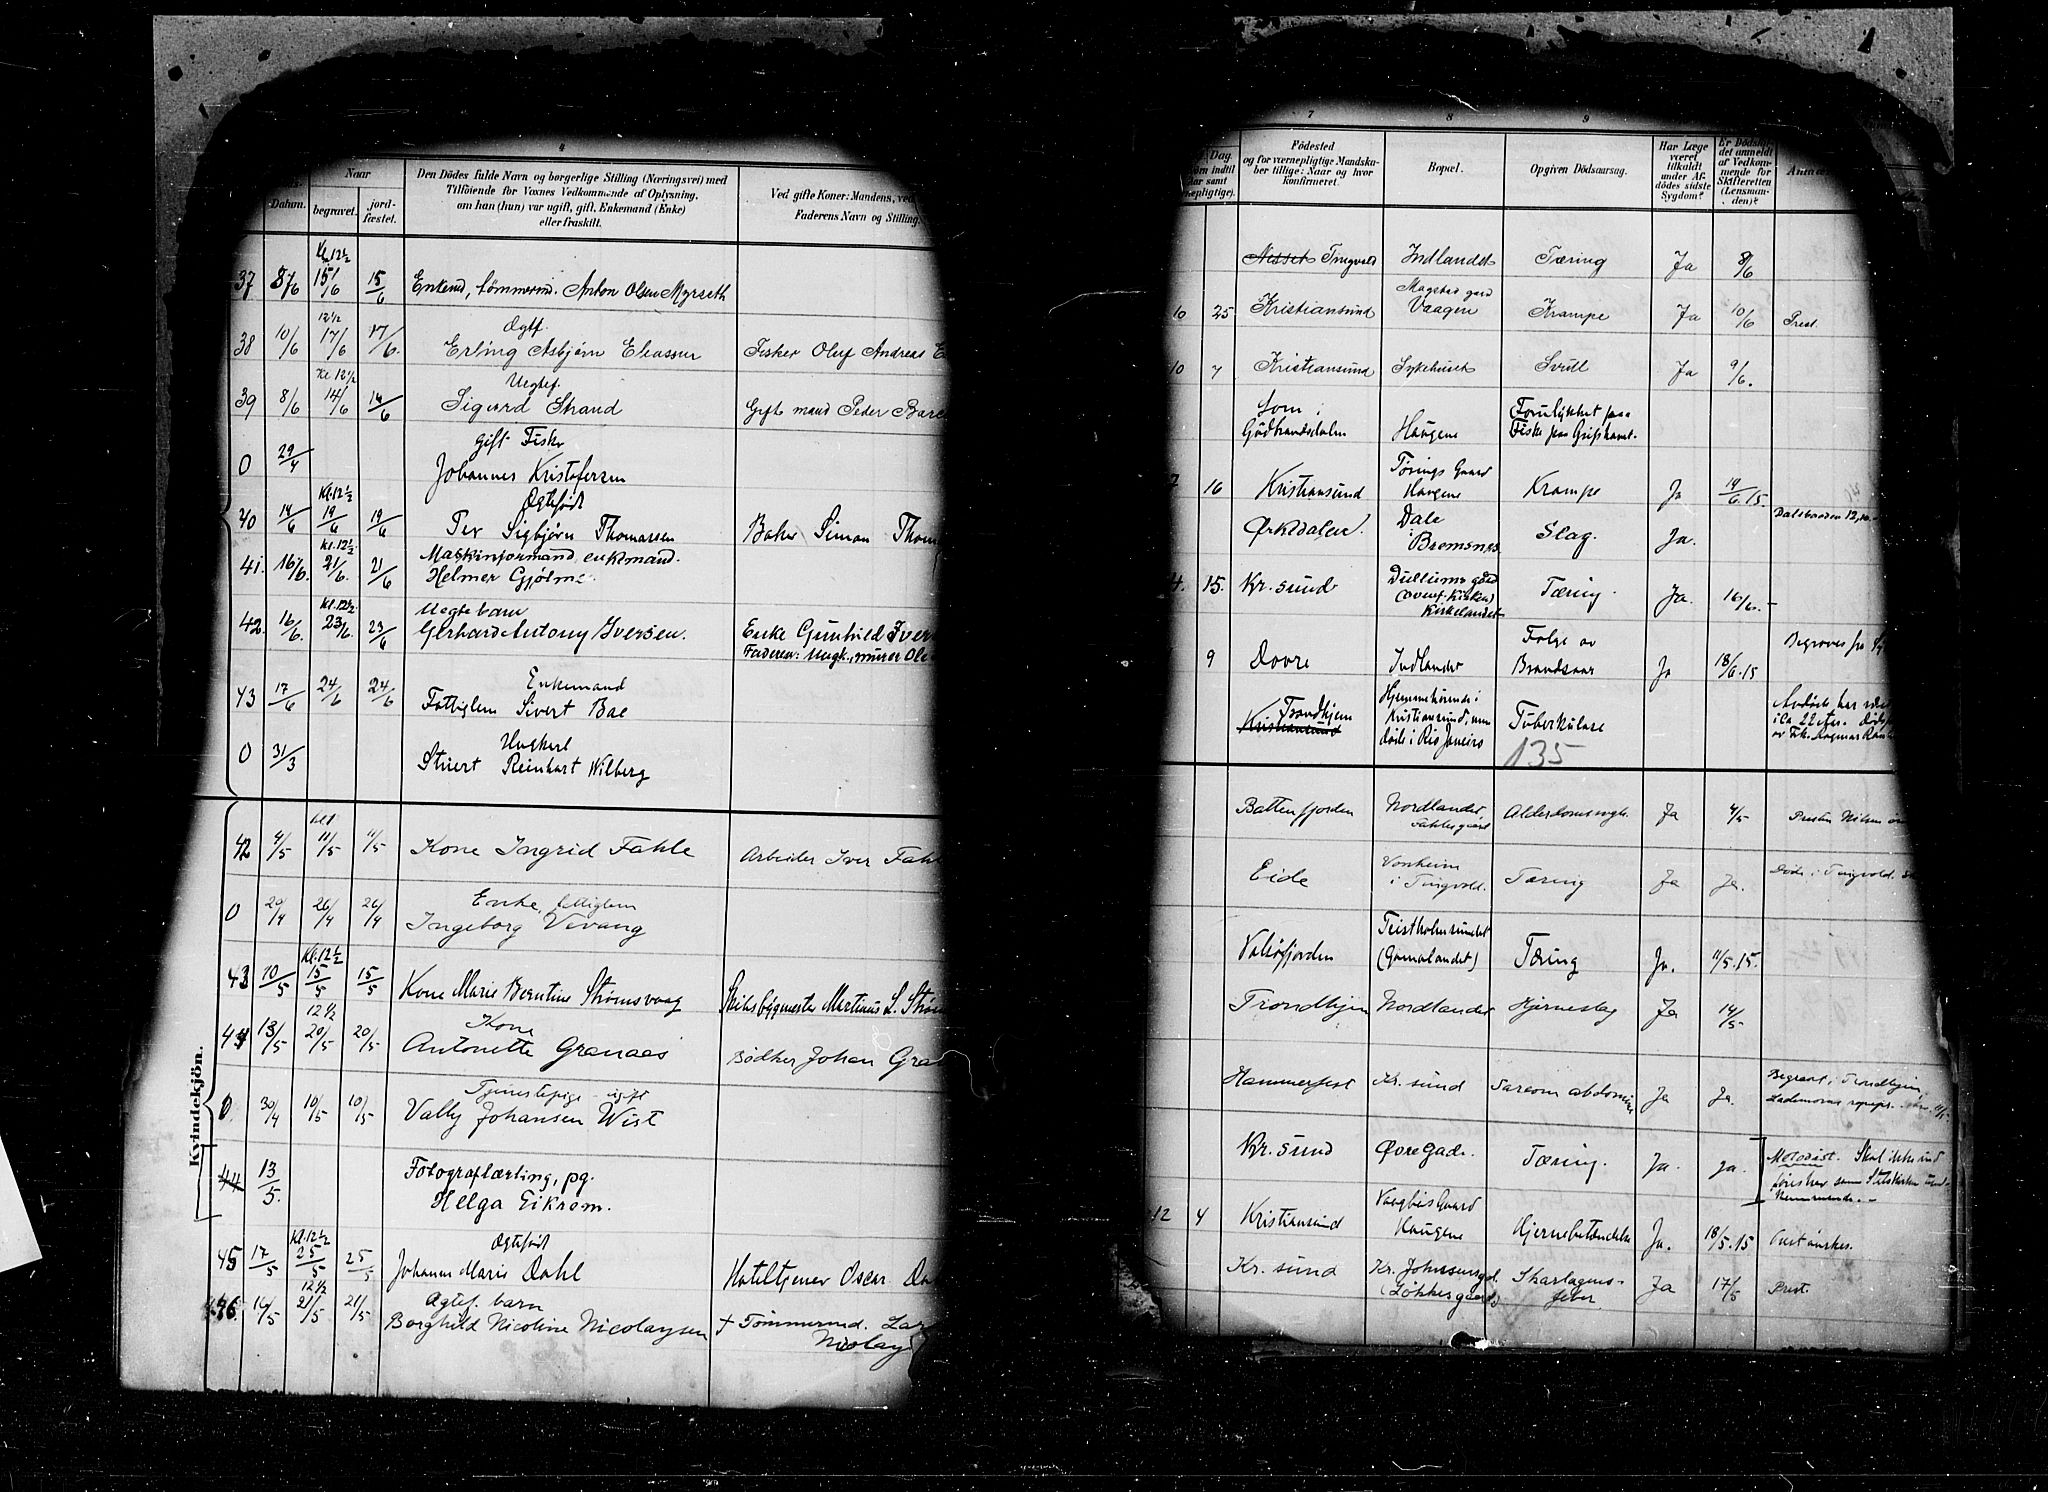 4
Datum.
Naar
begravet.
jord-
fæstet.
Den Dödes fulde Navn og borgerlige Stilling (Næringsvei) med
Tilföiende for Voxnes Vedkommende af Oplysning,
om han (hun) var ugift, gift, Enkemand (Enke)
eller fraskilt.
Ved gifte Koner: Mandens, ved
Faderens Navn og Stilling.
Kl. 12½
37 8/6 15/6 15/6 Enkemd, tømmermd. Anton Olsen Myrseth
12½ Ogtf.
38 10/6 17/6 17/6. Erling Asbjørn Eliassen Fisker Oluf Andreas E
Kl. 12½ Uegtef.
39 8/6 14/6 14/6 Sigurd Strand Gift mand Peder
0 29/4 Gift Fisker
Johannes Kristofersen
Kl. 12½ Ogtefødt
40 14/6 19/6 19/6 Per Sigbjørn Thomassen Baker Simon Thom
Kl. 12½ Maskinformand, enkemand.
41. 16/6. 21/6. 21/6 Helmer Gjølme
Kl. 12½ Uegte barn
42. 16/6. 23/6. 23/6 Gerhard Antony Iversen. Enke Gunhild Iver
Faderen: Ungk., murer Ole
Enkemand
43 17/6 24/6 24/6 Fattiglem Sivert Bae
Ungkarl
0 31/3 Stuert Reinhart Wilberg
Kvindekjön.
42 4/5 11/5 11/5 Kone Ingrid Fahle Arbeider Iver Fahl
Enke, fattiglem
0 20/4 26/4 26/4 Ingeborg Vevang
Kl. 12½
43 10/5 15/5 15/5 Kone Marie Berntine Strømsvaag Skibsbygmester Martinus L. Strøm
12½ Kone
44 13/5 20/5 20/5 Antonette Granaas Bødker Johan Gra
Tjenestepige - ugift
0. 30/4 10/5 10/5 Valby Johansen Wist
44 13/5. Fotograflærling, pg.
Helga Eikrem.
Kl. 12½ Ogtefødt
45 17/5 25/5 25/5 Johanne Marie Dahl Hoteltjener Oscar Da
12½ Ogtef. barn
46. 16/5 21/5 21/5 Borghild Nicoline Nicolaysen † Tømmermd. La
Nicolay
7
8
9
Dag
Födested
og for værnepligtige Mandska-
ber tillige: Naar og hvor
konfirmeret.
Bopæl.
Opgiven Dödsaarsag.
Har Læge
været
tilkaldt
under Af-
dödes sidste
Sygdom?
Er Dödsfal-
det anmeldt
af Vedkom-
mende for
Skifteretten
(Lensman-
den)?
Nesset Tingvold Indlandet Tæring Ja 8/6
Magstad gard
10 25 Kristiansund Vaagen Krampe Ja 10/6 Prest.
10 7 Kristiansund Sykehuset Svull Ja 9/6.
Lom i Forulykket paa
Gudbrandsdalen Haugene Fiske paa Griphavet.
Tørings Gaard
16 Kristiansund Haugene Krampe Ja 14/6.15.
Dale
Ørkedalen. Bremsnes Slag. Ja.
Dullums gård
4. 15. Kr.sund (ovenf. Kirken) Tæring. Ja. 16/6.
Kirkelandet
Følge av
9 Dovre Indlandet Brandsaar Ja 18/6.15
Trondhjem Hjemmehørende i
Kristiansund Kristiansund, men Tuberkulose
døde i Rio Janeiro
Avdøde har været
i Ca 22 Aar.
135
Battenfjorden Nordlandet, Alderdomssvagh. Ja 4/5
Fahlesgaard
Eide Vonheim Tæring Ja Ja. Døde i Tingvold.
i Tingvold.
Valsøfjorden (Gomalandet) Tæring Ja. 11/5.15.
Trondhjem Nordlandet Hjerneslag Ja 14/5
Hammerfest Kr. sund Sarcom abdomine Ja Ja. Begravet i Trondhjem,
Kr. sund Øvregade. Tæring. Ja. Ja. Metodist. Skal ikke ind
Vaagbøs Gaard
12 4 Kristiansund Haugene Hjernebetændelse Ja. 18/5.15
Kr. sund Kr. Johnsensgd. Skarlagens- Ja 17/5 Prest.
(Løkkegaard) feber.